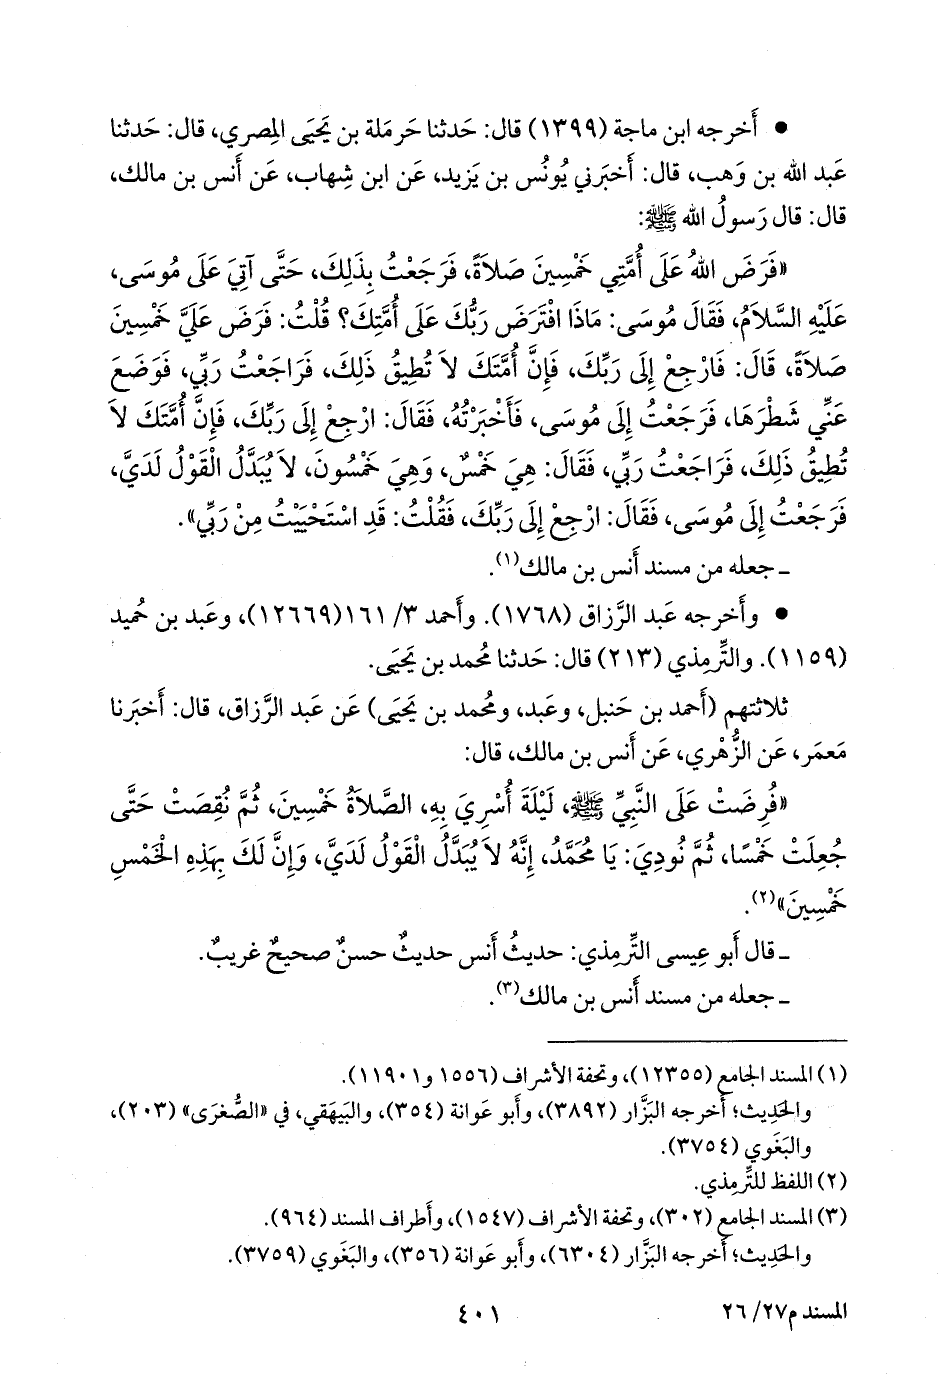 • أَخرجه ابن ماجة (١٣٩٩) قال: حَدثنا حَرمَلة بن يَحيَى المِصري، قال: حَدثنا
عَبد الله بن وَهب، قال: أَخبَرني يُونُس بن يَزيد، عَن ابن شِهاب، عَن أَنس بن مالك،
قال: قال رَسولُ الله ﷺ:
«فَرَضَ اللهُ عَلَى أُمَّتِي خَمْسِينَ صَلاَةً، فَرَجَعْتُ بِذَلِكَ، حَتَّى آتِيَ عَلَى مُوسَى،
عَلَيْهِ السَّلاَمُ، فَقَالَ مُوسَى: مَاذَا افْتَرَضَ رَبُّكَ عَلَى أُمَّتِكَ؟ قُلْتُ: فَرَضَ عَلَيَّ خَمْسِينَ
صَلاَةً، قَالَ: فَارْجِعْ إِلَى رَبِّكَ، فَإِنَّ أُمَّتَكَ لاَ تُطِيقُ ذَلِكَ، فَرَاجَعْتُ رَبِّي، فَوَضَعَ
عَنِّي شَطْرَهَا، فَرَجَعْتُ إِلَى مُوسَى، فَأَخْبَرْتُهُ، فَقَالَ: ارْجِعْ إِلَى رَبِّكَ، فَإِنَّ أُمَّتَكَ لاَ
تُطِيقُ ذَلِكَ، فَرَاجَعْتُ رَبِّي، فَقَالَ: هِيَ خَمْسٌ، وَهِيَ خَمْسُونَ، لاَ يُبَدَّلُ الْقَوْلُ لَدَيَّ،
فَرَجَعْتُ إِلَى مُوسَى، فَقَالَ: ارْجِعْ إِلَى رَبِّكَ، فَقُلْتُ: قَدِ اسْتَحْيَيْتُ مِنْ رَبِّي».
ـ جعله من مسند أَنس بن مالك(١).
• وأَخرجه عَبد الرَّزاق (١٧٦٨). وأَحمد ٣/ ١٦١(١٢٦٦٩)، وعَبد بن حُميد
(١١٥٩). والتِّرمِذي (٢١٣) قال: حَدثنا مُحمد بن يَحيَى.
ثلاثتهم (أَحمد بن حَنبل، وعَبد، ومُحمد بن يَحيَى) عَن عَبد الرَّزاق، قال: أَخبَرنا
مَعمَر، عَن الزُّهْري، عَن أَنس بن مالك، قال:
«فُرِضَتْ عَلَى النَّبِيِّ ﷺ، لَيْلَةَ أُسْرِيَ بِهِ، الصَّلاَةُ خَمْسِينَ، ثُمَّ نُقِصَتْ حَتَّى
جُعِلَتْ خَمْسًا، ثُمَّ نُودِيَ: يَا مُحَمَّدُ، إِنَّهُ لاَ يُبَدَّلُ الْقَوْلُ لَدَيَّ، وَإِنَّ لَكَ بِهَذِهِ الْخَمْسِ
خَمْسِينَ»(٢).
ـ قال أَبو عِيسى التِّرمِذي: حديثُ أَنس حديثٌ حسنٌ صحيحٌ غريبٌ.
ـ جعله من مسند أَنس بن مالك(٣).
(١) المسند الجامع (١٢٣٥٥)، وتحفة الأشراف (١٥٥٦ و١١٩٠١).
والحَدِيث؛ أَخرجه البَزَّار (٣٨٩٢)، وأَبو عَوانة (٣٥٤)، والبَيهَقي، في «الصُّغرَى» (٢٠٣)،
والبَغَوي (٣٧٥٤).
(٢) اللفظ للتِّرمِذي.
(٣) المسند الجامع (٣٠٢)، وتحفة الأشراف (١٥٤٧)، وأطراف المسند (٩٦٤).
والحَدِيث؛ أَخرجه البَزَّار (٦٣٠٤)، وأَبو عَوانة (٣٥٦)، والبَغَوي (٣٧٥٩).
المسند م٢٧/ ٢٦
٤٠١